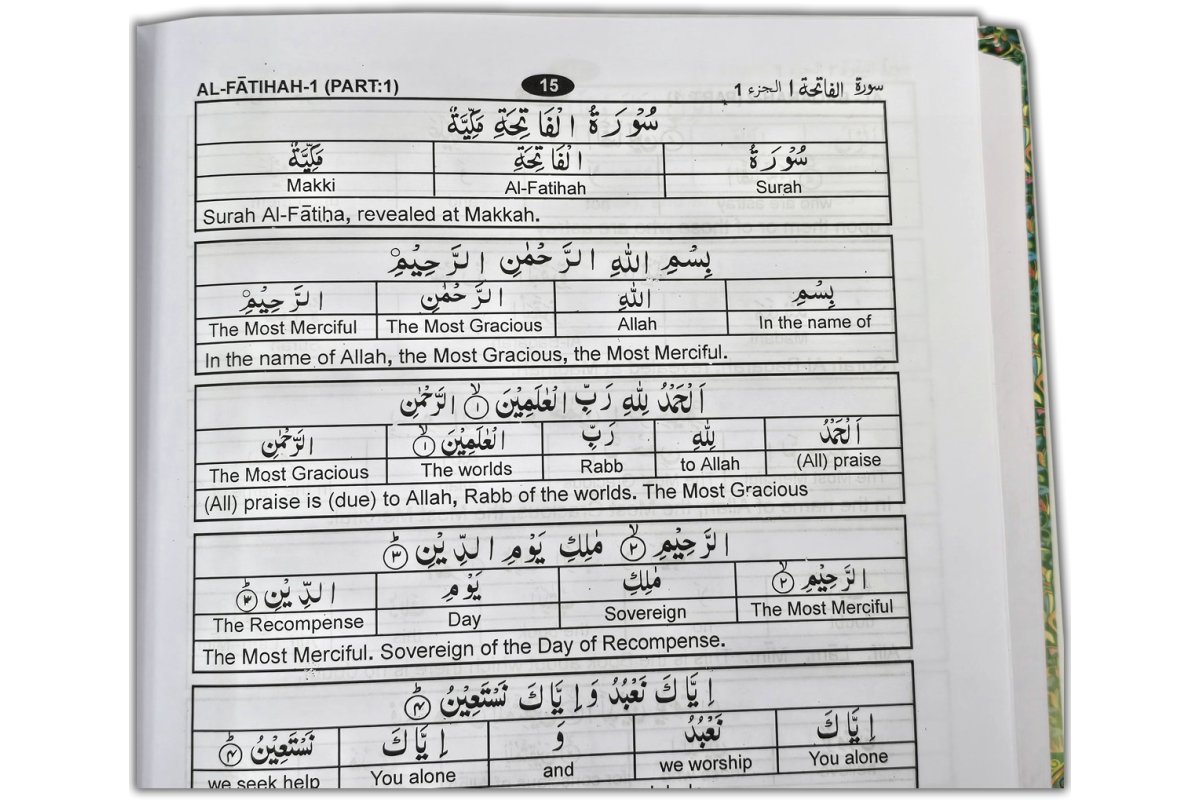 AL-FĀTIHAH-1 (PART:1) 15 سورة الفاتحة ١ الجزء 1
سُوْرَةُ الْفَاتِحَةِ مَكِّيَّةٌ
سُوْرَةُ الْفَاتِحَةِ مَكِّيَّةٌ
Makki Al-Fatihah Surah
Surah Al-Fātiḥa, revealed at Makkah.
بِسْمِ اللهِ الرَّحْمٰنِ الرَّحِيْمِ
بِسْمِ اللهِ الرَّحْمٰنِ الرَّحِيْمِ
The Most Merciful The Most Gracious Allah In the name of
In the name of Allah, the Most Gracious, the Most Merciful.
اَلْحَمْدُ لِلّٰهِ رَبِّ الْعٰلَمِيْنَ ۙ﴿١﴾ الرَّحْمٰنِ
اَلْحَمْدُ لِلّٰهِ رَبِّ الْعٰلَمِيْنَ ۙ﴿١﴾ الرَّحْمٰنِ
The Most Gracious The worlds Rabb to Allah (All) praise
(All) praise is (due) to Allah, Rabb of the worlds. The Most Gracious
الرَّحِيْمِ ۙ﴿٢﴾ مٰلِكِ يَوْمِ الدِّيْنِ ؕ﴿٣﴾
الرَّحِيْمِ ۙ﴿٢﴾ مٰلِكِ يَوْمِ الدِّيْنِ ؕ﴿٣﴾
The Recompense Day Sovereign The Most Merciful
The Most Merciful. Sovereign of the Day of Recompense.
اِيَّاكَ نَعْبُدُ وَاِيَّاكَ نَسْتَعِيْنُ ؕ﴿٤﴾
اِيَّاكَ نَعْبُدُ وَ اِيَّاكَ نَسْتَعِيْنُ ؕ﴿٤﴾
we seek help You alone and we worship You alone